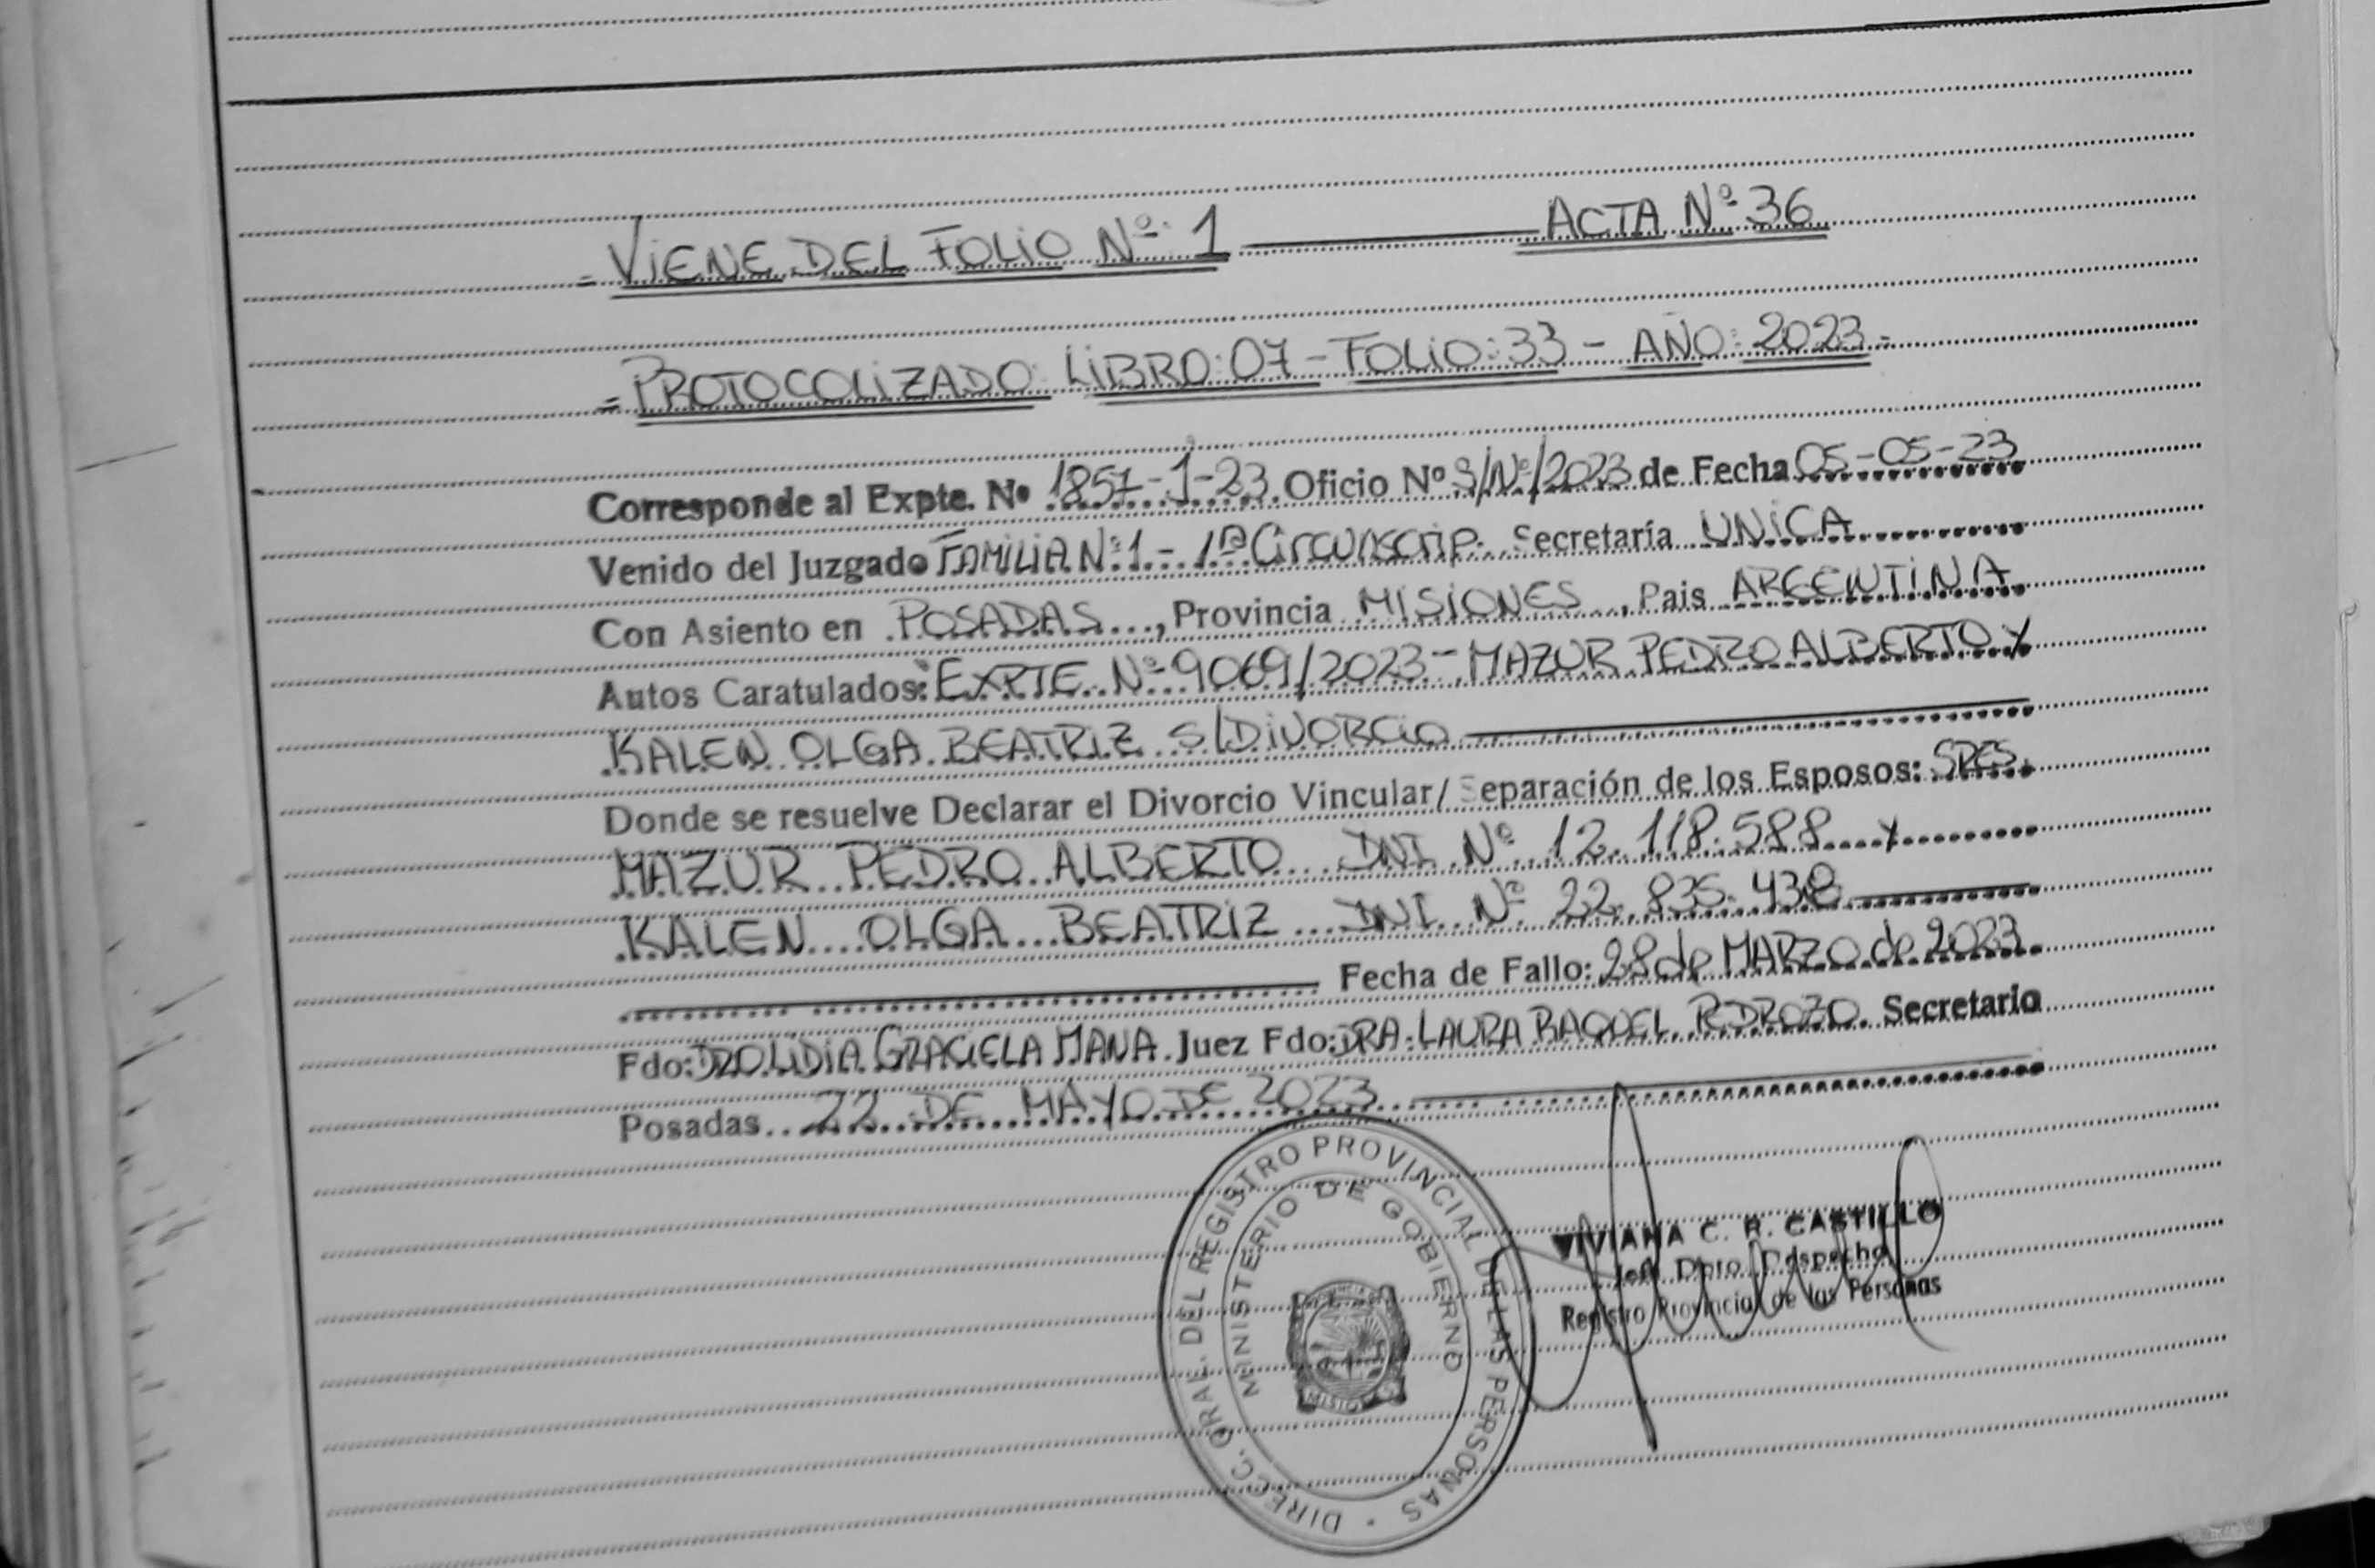 = VIENE DEL FOLIO Nº 1 ACTA Nº 36
= PROTOCOLIZADO: LIBRO: 07 - FOLIO: 33 - AÑO: 2023 =
Corresponde al Expte. Nº 1857-J-23. Oficio Nº S/Nº/2023 de Fecha 05-05-23
Venido del Juzgado FAMILIA Nº 1 - 1ª Circunscrip. Secretaría UNICA
Con Asiento en POSADAS, Provincia MISIONES, Pais ARGENTINA
Autos Caratulados: EXPTE Nº 9069/2023 - MAZUR PEDRO ALBERTO Y
KALEN OLGA BEATRIZ S/DIVORCIO
Donde se resuelve Declarar el Divorcio Vincular/ Separación de los Esposos: SRES.
MAZUR PEDRO ALBERTO DNI Nº 12.118.588 Y
KALEN OLGA BEATRIZ DNI Nº 22.835.438
Fecha de Fallo: 28 de MARZO de 2023.
Fdo: LIDIA GRACIELA MANA. Juez Fdo: DRA. LAURA RAQUEL PEDROZO. Secretario
Posadas 22 DE MAYO DE 2023
DIRECC. GRAL. DEL REGISTRO PROVINCIAL DE LAS PERSONAS
MINISTERIO DE GOBIERNO
MISIONES
VIVIANA C. R. CASTILLO
Jefe Dpto. Despacho
Registro Provincial de las Personas